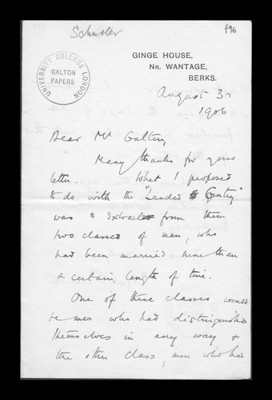 Schuster
496
GINGE HOUSE,
NR. WANTAGE,
BERKS.
UNIVERSITY COLLEGE LONDON
GALTON
PAPERS
August 30
1906
Dear Mr Galton
Many thanks for your
letter. What I proposed
to do with the "Landed Gentry"
was to extract from them
two classes of men, who
had been married more than
a certain length of time.
One of these classes would
be men who had distinguished
themselves in any way &
the other class, men who had